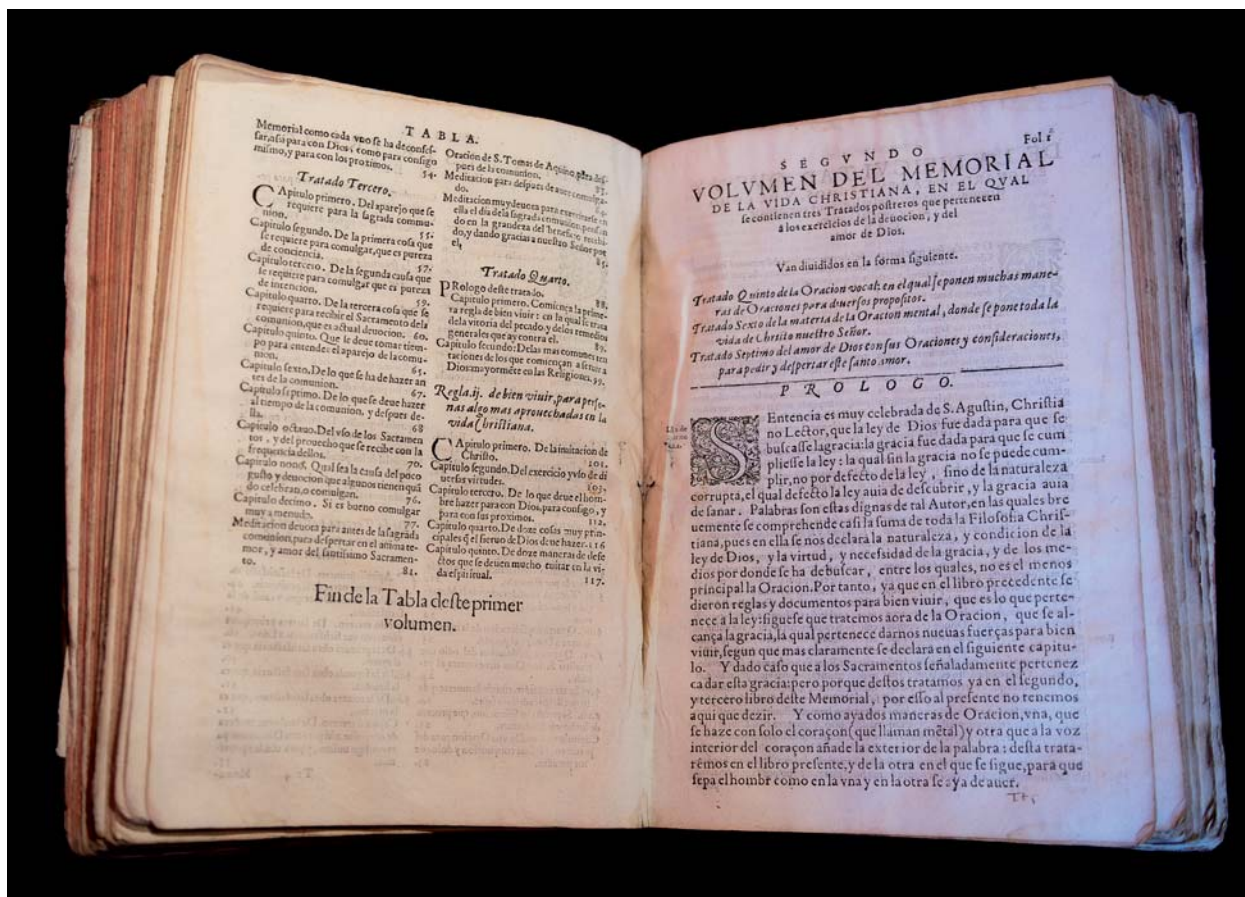 TABLA.
Memorial como cada vno se ha de confes-
sar, assi para con Dios, como para consigo
mismo, y para con los proximos. 54.
Tratado Tercero.
CApitulo primero. Del aparejo que se
requiere para la sagrada commu-
nion. 55.
Capitulo segundo. De la primera cosa que
se requiere para comulgar, que es pureza
de conciencia. 57.
Capitulo tercero. De la segunda causa que
se require para comulgar que es pureza
de intencion. 59.
Capitulo quarto. De la tercera cosa que se
requiere para recibir el Sacramento de la
comunion, que es actual deuocion. 60.
Capitulo quinto. Que se deue tomar tiem-
po para entender el aparejo de la comu-
nion. 65.
Capitulo sexto. De lo que se ha de hazer an
tes de la comunion. 67.
Capitulo septimo. De lo que se deue hazer
al tiempo de la comunion, y despues de-
lla. 68
Capitulo octauo. Del vso de los Sacramen
tos, y del prouecho que se recibe con la
frequencia dellos. 70.
Capitulo nono. Qual sea la causa del poco
gusto y deuocion que algunos tienen quā
do celebran, o comulgan. 76.
Capitulo decimo. Si es bueno comulgar
muy a menudo. 77.
Meditacion deuota para antes de la sagrada
comunion, para despertar en el anima te-
mor, y amor del santissimo Sacramen-
to. 81.
Oracion de S. Tomas de Aquino, para des-
pues de la comunion. 83.
Meditacion para despues de auer comulga-
do. 84.
Meditacion muy deuota para exercitarse en
ella el dia de la sagrada comunion, pensan
do en la grandeza del beneficio recebi-
do, y dando gracias a nuestro Señor por
el. 85.
Tratado Quarto.
PRologo deste tratado. 88.
Capitulo primero. Comiença la prime-
ra regla de bien viuir: en la qual se trata
de la vitoria del pecado, y de los remedios
generales que ay contra el. 89.
Capitulo secundo: De las mas comunes ten
taciones de los que comiençan a seruir a
Dios: mayormēte en las Religiones. 99.
Regla.ij. de bien viuir, para perso-
nas algo mas aprouechadas en la
vida Christiana.
CApitulo primero. De la imitacion de
Christo. 101.
Capitulo segundo. Del exercicio y vso de di
uersas virtudes. 103.
Capitulo tercero. De lo que deue el hom-
bre hazer para con Dios, para consigo, y
para con sus proximos. 112.
Capitulo quarto. De doze cosas muy prin-
cipales q̄ el sieruo de Dios deue hazer. 116
Capitulo quinto. De doze maneras de defe
ctos que se deuen mucho euitar en la vi-
da espiritual. 117.
Fin de la Tabla deste primer
volumen.
Fol 1
SEGVNDO
VOLVMEN DEL MEMORIAL
DE LA VIDA CHRISTIANA, EN EL QVAL
se contienen tres Tratados postreros que pertenecen
á los exercicios de la deuocion, y del
amor de Dios.
Van diuididos en la forma siguiente.
Tratado Quinto de la Oracion vocal: en el qual se ponen muchas mane-
ras de Oraciones para diuersos propositos.
Tratado Sexto de la materia de la Oracion mental, donde se pone toda la
vida de Christo nuestro Señor.
Tratado Septimo del amor de Dios con sus Oraciones y consideraciones,
para pedir y despertar este santo amor.
PROLOGO.
SEntencia es muy celebrada de S. Agustin, Christia
no Lector, que la ley de Dios fue dada para que se
buscasse la gracia: la gracia fue dada para que se cum
pliesse la ley: la qual sin la gracia no se puede cum-
plir, no por defecto de la ley, sino de la naturaleza
corrupta, el qual defecto la ley auia de descubrir, y la gracia auia
de sanar. Palabras son estas dignas de tal Autor, en las quales bre
uemente se comprehende casi la suma de toda la Filosofia Chris-
tiana, pues en ella se nos declara la naturaleza, y condicion de la
ley de Dios, y la virtud, y necessidad de la gracia, y de los me-
dios por donde se ha de buscar, entre los quales, no es el menos
principal la Oracion. Por tanto, ya que en el libro precedente se
dieron reglas y documentos para bien viuir, que es lo que perte-
nece a la ley: siguese que tratemos aora de la Oracion, que se al-
cança la gracia, la qual pertenece darnos nueuas fuerças para bien
viuir, segun que mas claramente se declara en el siguiente capitu-
lo. Y dado caso que a los Sacramentos señaladamente pertenez
ca dar esta gracia: pero porque destos tratamos ya en el segundo,
y tercero libro deste Memorial, por esso al presente no tenemos
aqui que dezir. Y como aya dos maneras de Oracion, vna, que
se haze con solo el coraçon (que llaman mētal) y otra que a la voz
interior del coraçon añade la exterior de la palabra: desta trata-
rémos en el libro presente, y de la otra en el que se sigue, para que
sepa el hombr como en la vna y en la otra se aya de auer.